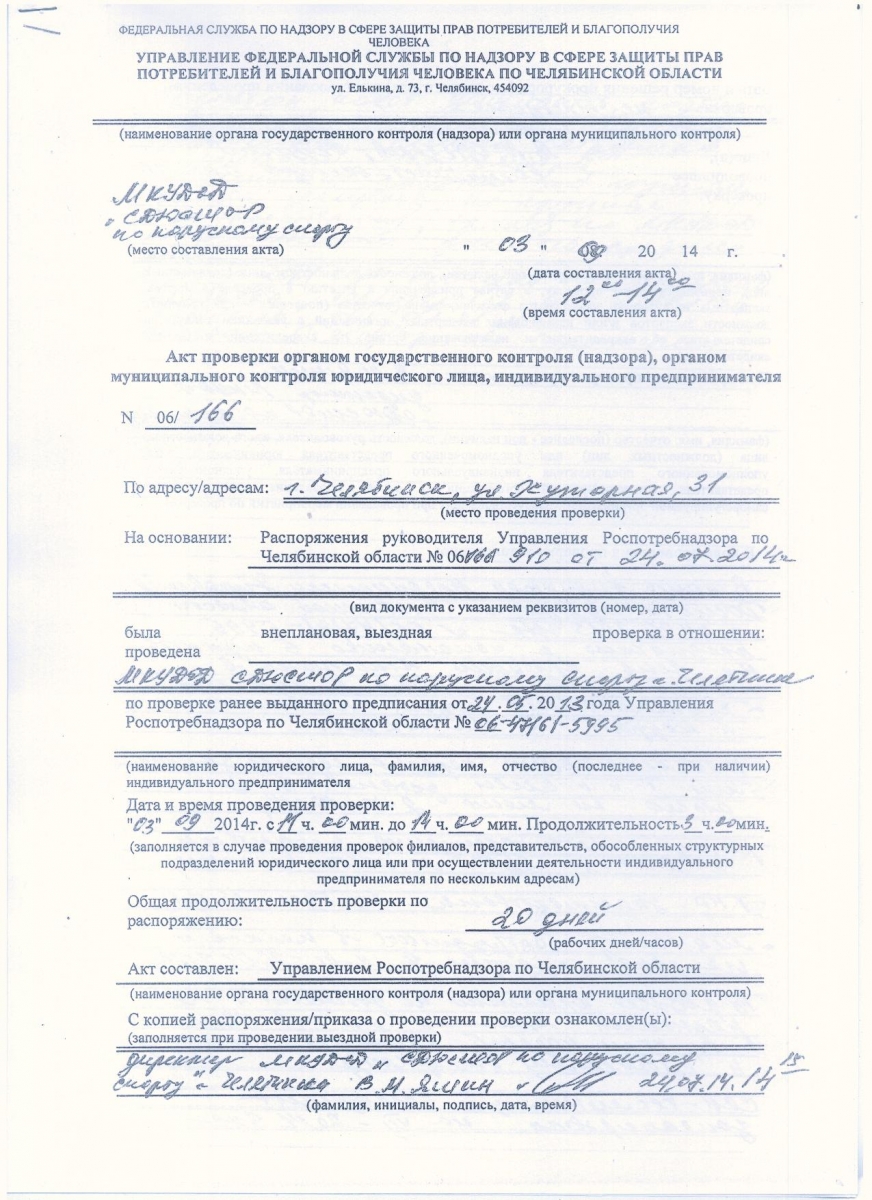 ФЕДЕРАЛЬНАЯ СЛУЖБА ПО НАДЗОРУ В СФЕРЕ ЗАЩИТЫ ПРАВ ПОТРЕБИТЕЛЕЙ И БЛАГОПОЛУЧИЯ
ЧЕЛОВЕКА
УПРАВЛЕНИЕ ФЕДЕРАЛЬНОЙ СЛУЖБЫ ПО НАДЗОРУ В СФЕРЕ ЗАЩИТЫ ПРАВ
ПОТРЕБИТЕЛЕЙ И БЛАГОПОЛУЧИЯ ЧЕЛОВЕКА ПО ЧЕЛЯБИНСКОЙ ОБЛАСТИ
ул. Елькина, д. 73, г. Челябинск, 454092
(наименование органа государственного контроля (надзора) или органа муниципального контроля)
МКУДОД
"СДЮСШОР
по парусному спорту
(место составления акта)
" 03 " 09 20 14 г.
(дата составления акта)
12 00 - 14 00
(время составления акта)
Акт проверки органом государственного контроля (надзора), органом
муниципального контроля юридического лица, индивидуального предпринимателя
N 06/ 166
По адресу/адресам: г. Челябинск, ул Худорная, 31
(место проведения проверки)
На основании: Распоряжения руководителя Управления Роспотребнадзора по
Челябинской области № 910 от 24.07.2014г
(вид документа с указанием реквизитов (номер, дата)
была внеплановая, выездная проверка в отношении:
проведена
МКУДОД СДЮСШОР по парусному спорту г. Челябинска
по проверке ранее выданного предписания от 24.05.2013 года Управления
Роспотребнадзора по Челябинской области № 06-47/61-5995
(наименование юридического лица, фамилия, имя, отчество (последнее - при наличии)
индивидуального предпринимателя
Дата и время проведения проверки:
"03" 09 2014г. с 11 ч. 00 мин. до 14 ч. 00 мин. Продолжительность 3 ч. 00 мин.
(заполняется в случае проведения проверок филиалов, представительств, обособленных структурных
подразделений юридического лица или при осуществлении деятельности индивидуального
предпринимателя по нескольким адресам)
Общая продолжительность проверки по
распоряжению: 20 дней
(рабочих дней/часов)
Акт составлен: Управлением Роспотребнадзора по Челябинской области
(наименование органа государственного контроля (надзора) или органа муниципального контроля)
С копией распоряжения/приказа о проведении проверки ознакомлен(ы):
(заполняется при проведении выездной проверки)
директор МКУДОД "СДЮСШОР по парусному
спорту" г. Челябинска В.М. Яшин 24.07.14. 14 15
(фамилия, инициалы, подпись, дата, время)